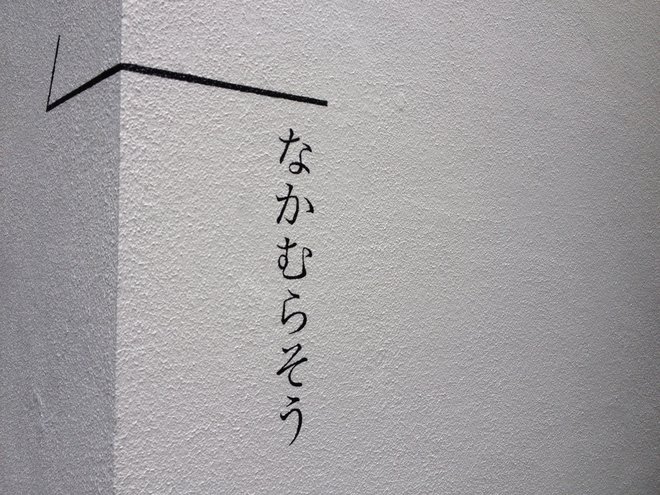 なかむらそう